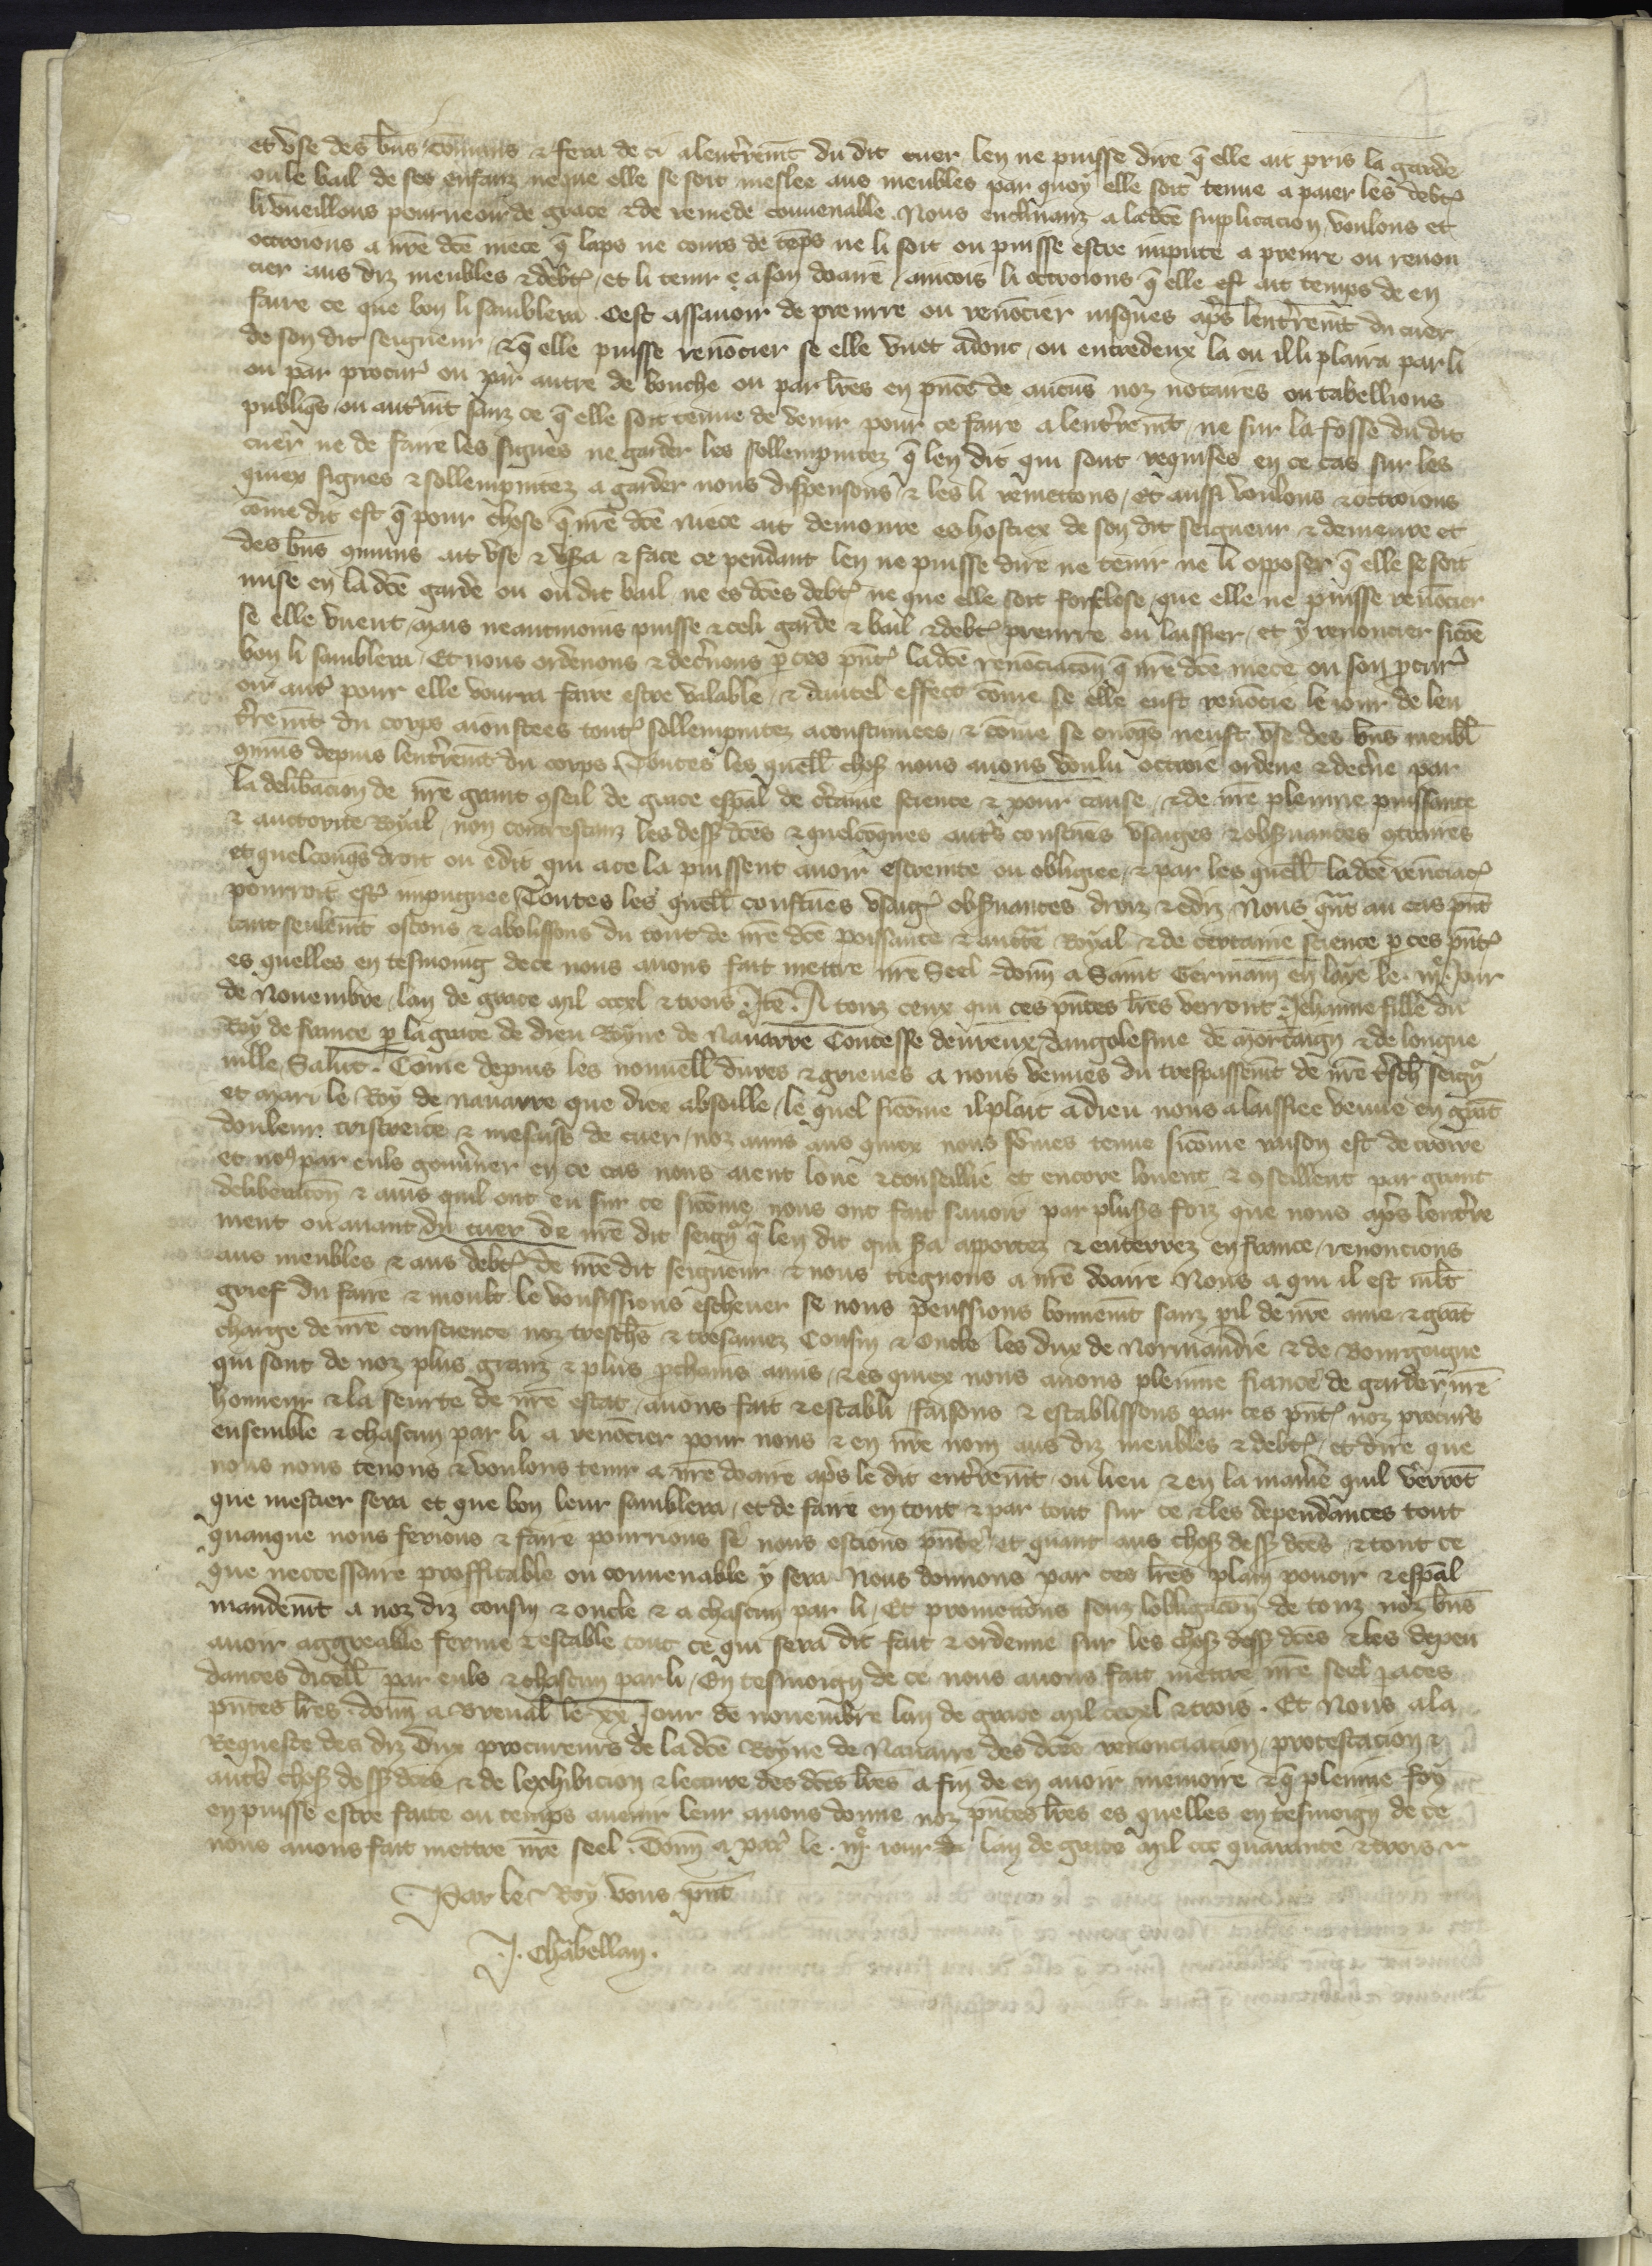 et use des bn̄s cōmuns & fera de ci alentr̄remt̄ du dit cuer len ne puisse dire q̄ elle ait pris la garde
ou le bail de ses enfanz neque elle se soit meslee aus meubles par quoy elle soit tenue a paier les debt᷒
li vueillons pourueoir de grace & de remede conuenable. Nous enclinanz a ladc̄e supplicacion, voulons et
ottroions a nr̄e dc̄e niece q̄ laps ne cours de tēps ne li soit ou puisse estre impute a prenre ou renon
cier aus diz meubles & debt᷒, et li tenir a son doaire, aincois li ottroions q̄ elle ait temps de en
faire ce que bon li samblera. Cest assauoir de prenrre ou renōcier iusques ap̄s lentr̄remt̄ du cuer
de son dit seigneur, & q̄ elle puisse renōcier se elle vuet adonc, ou entredeux la ou il li plaira par li
ou par procur᷒ ou par autre de bouche ou par lr̄es en pn̄ce de aucūs noz notaires ou tabellions
publiq̄s ou autremt̄ sanz ce q̄ elle soit tenue de venir pour ce faire a lentr̄remt̄, ne sur la fosse du dit
cuer ne de faire les signes ne garder les sollempnitez q̄ len dit qui sont requises en ce cas sur les
quiex signes & sollempnitez a garder nous dispensons & les li remettons, et aussi voulons & ottroions
cōme dit est q̄ pour chose q̄ nr̄e dc̄e niece ait demoure es hostiex de son dit seigneur & demeure et
des bn̄s cōmuns ait use & usā & face ce pendant len ne puisse dire ne tenir ne li opposer q̄ elle se soit
mise en ladc̄e garde ou ou dit bail ne es dc̄es debt᷒ ne que elle soit forclose, que elle ne puisse renōcier
se elle vuent, mais neantmoins puisse & celi garde & bail & debt᷒ prenrre ou laissier, et y renoncier sicōe
bon li samblera, Et nous ordenons & decr̄nons p̄ ces pn̄t᷒ ladc̄e renōciacōn q̄ nr̄e dc̄e niece ou son p̄cur᷒
ou aut᷒ pour elle vourra faire estre valable, & dautel effect cōme se elle eust renōcie le iour de len
tr̄remt̄ du corps aioustees tout᷒ sollempnitez acoustumees, & cōme se onq̄s neust use des bn̄s meubl̄
cōmuns depuis lentr̄remt̄ du corps. Toutes les quell̄ chos᷒ nous auons voulu ottroie ordene & decr̄ne par
la delib̄acion de nr̄e grant cōseil de grace esp̄al de c̄taine science & pour cause, & de nr̄e plenire puissance
& auctorite Royal, non contrestanz les dess᷒ dc̄es & quelcōques aut᷒s coustūes usaiges & obs̄uances contraires
et quelconq̄s droit ou edit qui a ce la puissent auoir estreinte ou obligiee, & par les quell̄ ladc̄e renōciac᷒
pourroit est᷒ impugnee Toutes les quell̄ coustūes usaig᷒ obs̄uances droiz & ediz Nous q̄nt au cas pn̄t
tant seulemt̄ ostons & abolissons du tout de nr̄e dc̄e poissance & auct̄e Royal & de certaine science p̄ ces pn̄t᷒
es quelles en tesmoing de ce nous auons fait mettre nr̄e Seel. Donn̄ a Saint Germain en laye le .iiiͤ. Jour
de Nouembre, lan de grace mil cccxl & trois. Itē. A touz ceux qui ces pn̄tes lr̄es verront Jehanne fille du
Roy de france p̄ la grace de dieu Royne de Nauarre Contesse deureux, dangolesme de mortaign & de longue
uille Salut. Cōme depuis les nouuell̄ dures & grieues a nous venues du trespassemt̄ de nr̄e tresch̄ seign᷒
et mari le Roy de nauarre que diex absoille, le quel sicōme il plait a dieu nous a laissiee venue en grāt
douleur tristeice & mesaise de cuer, noz amis aus quiex nous sōmes tenue sicōme raison est de croire
et no᷒ par euls gouu̓ner en ce cas nous aient loue & conseillie et encore louent & conseillent par grant
deliberacōn & auis quil ont eu sur ce sicōme nous ont fait sauoir par plus᷒s foiz que nous ap̄s lentr̄re
ment ou auant du cuer de nr̄e dit seign᷒ q̄ len dit qui s̄a aportez & enterrez en france, renoncions
aus meubles & aus debt᷒ de nr̄e dit seigneur & nous tiegnons a nr̄e doaire Nous a qui il est ml̄t
grief du faire & moult le vousissions escheuer se nous peussions bonnemt̄ sanz p̄il de nr̄e ame & grāt
charge de nr̄e conscience noz tresch̄s & tresamez Cousin & Oncle les dux de Normandie & de Bourgoigne
qui sont de noz plus granz & plus p̄chains amis, & es quiex nous auons pleniue fiance de garder nr̄e
honneur & la seurte de nr̄e estat, auons fait & establi, faisons & establissons par ces pn̄t᷒ noz procur᷒s
ensemble & chascun par li a renōcier pour nous & en nr̄e nom aus diz meubles & debt᷒, et dire que
nous nous tenons & voulons tenir a nr̄e doaire ap̄s le dit entr̄remt̄ ou lieu & en la manie᷒e quil verrōt
que mestier sera et que bon leur samblera, et de faire en tout & par tout sur ce & les dependances tout
quanque nous ferions & faire pourrions se nous estions pn̄te, et quant aus chos᷒ dess᷒ dc̄es & tout ce
que neccessaire proffitable ou conuenable y sera Nous donnons par ces lr̄es plain pouoir & esp̄al
mandemt̄ a noz diz cousin & oncle & a chascun par li, Et promettons souz lobligacōn de touz noz bn̄s
auoir aggreable ferme & estable tout ce qui sera dit fait & ordenne sur les chos᷒ dess᷒ dc̄es & les depen
dances dicell̄ par euls & chascun par li, En tesmoign de ce nous auons fait mettre nr̄e seel a ces
pn̄tes lr̄es. Donn̄ a Breual le xx Jour de nouembre lan de grace mil cccxl & trois. Et Nous a la
Requeste des diz Dux procureurs de ladc̄e Royne de Nauarre des dc̄es renonciacion, protestacion &
aut᷒s chos᷒ dess᷒ dc̄es & de lexhibicion & lecture des dc̄es lr̄es a fin de en auoir memoire & q̄ pleniue foy
en puisse estre faite ou temps auenir leur auons donne noz pn̄tes lr̄es es quelles en tesmoign de ce
nous auons fait mettre nr̄e seel. Donn̄ a par᷒ le .iiiͤ. iour de lan de grace mil ccc quarante & trois
Par le Roy vous pn̄t
J. Chābellan.